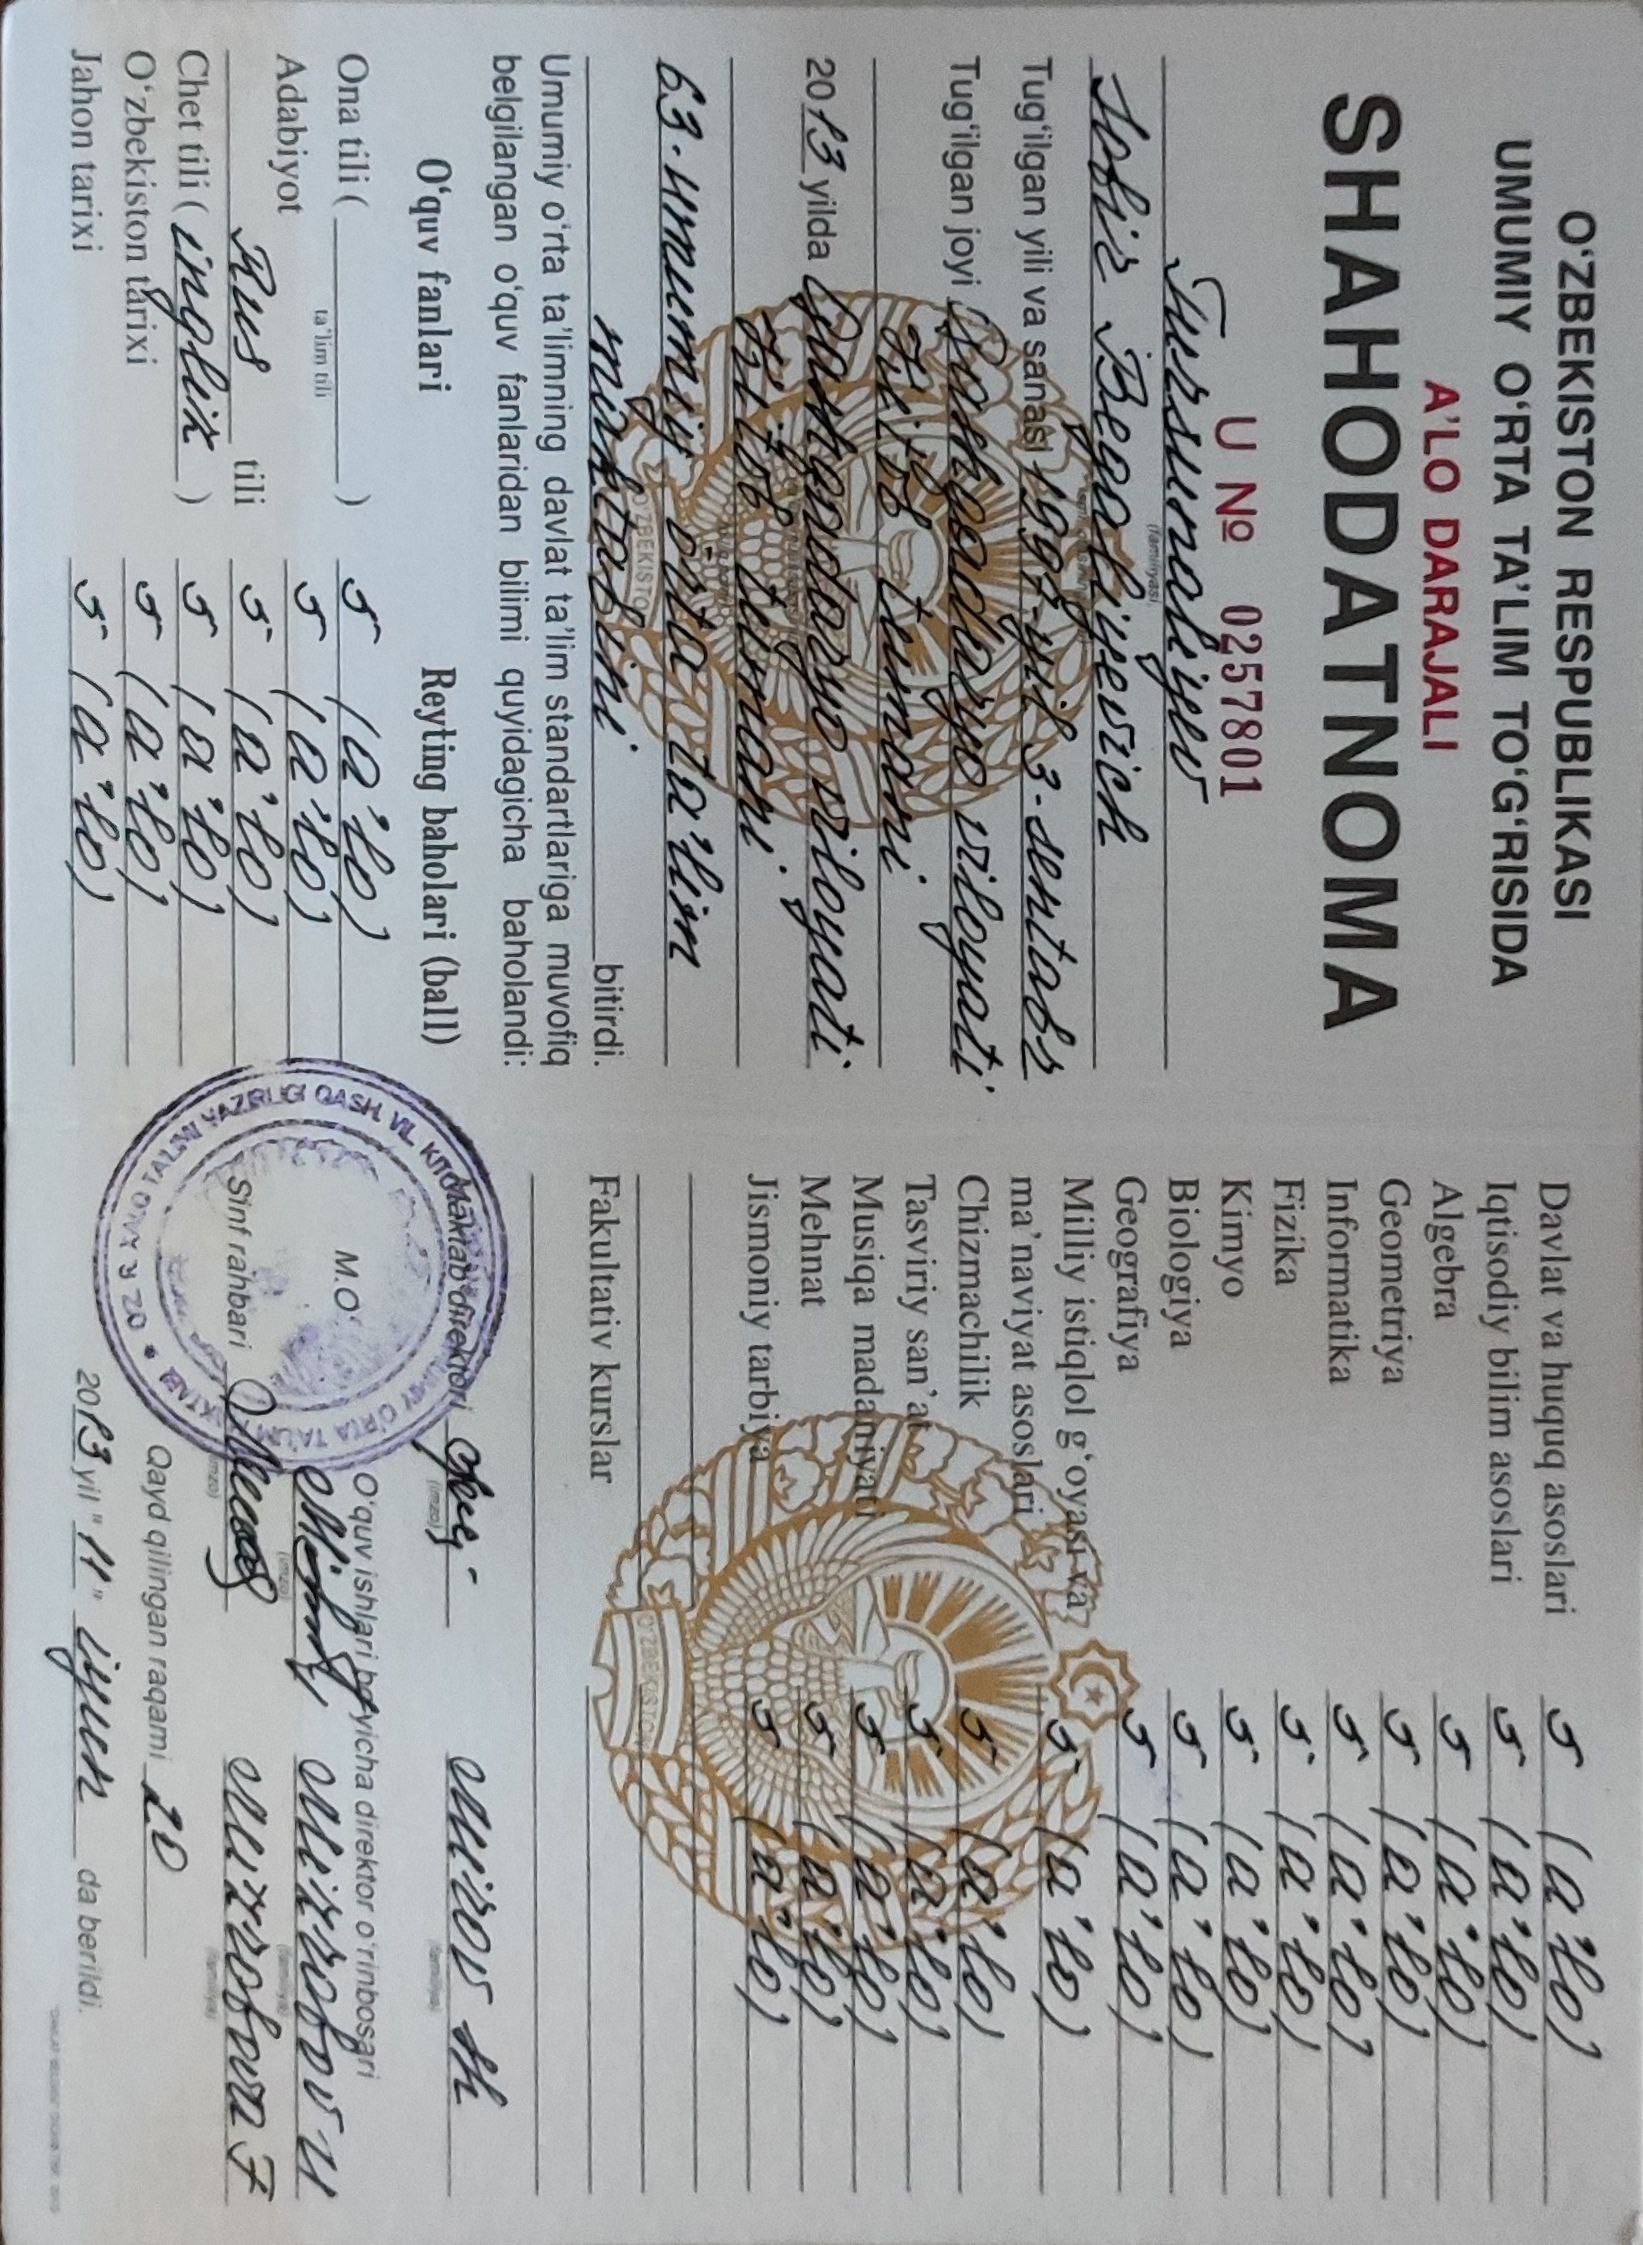 O‘ZBEKISTON RESPUBLIKASI
UMUMIY O‘RTA TA’LIM TO‘G‘RISIDA
A’LO DARAJALI
SHAHODATNOMA
U № 0257801
Tursunaliyev
(familiyasi)
Sobir Begaliyevich
Tug‘ilgan yili va sanasi 1997-yil 3-sentabr
Tug‘ilgan joyi Qashqadaryo viloyati
Kitob tumani
2013 yilda Qashqadaryo viloyati
Kitob tumani
63-umumiy o‘rta ta’lim
maktabini bitirdi.
Umumiy o‘rta ta’limning davlat ta’lim standartlariga muvofiq
belgilangan o‘quv fanlaridan bilimi quyidagicha baholandi:
O‘quv fanlari Reyting baholari (ball)
Ona tili ( ) 5 (a’lo)
ta’lim tili
Adabiyot 5 (a’lo)
Rus tili 5 (a’lo)
Chet tili ( ingliz ) 5 (a’lo)
O‘zbekiston tarixi 5 (a’lo)
Jahon tarixi 5 (a’lo)
Davlat va huquq asoslari 5 (a’lo)
Iqtisodiy bilim asoslari 5 (a’lo)
Algebra 5 (a’lo)
Geometriya 5 (a’lo)
Informatika 5 (a’lo)
Fizika 5 (a’lo)
Kimyo 5 (a’lo)
Biologiya 5 (a’lo)
Geografiya 5 (a’lo)
Milliy istiqlol g‘oyasi va
ma’naviyat asoslari 5 (a’lo)
Chizmachilik 5 (a’lo)
Tasviriy san’at 5 (a’lo)
Musiqa madaniyati 5 (a’lo)
Mehnat 5 (a’lo)
Jismoniy tarbiya 5 (a’lo)
Fakultativ kurslar
Maktab direktori Mirov Sh
(imzo) (familiya)
O‘quv ishlari bo‘yicha direktor o‘rinbosari
M.O‘. Mirzobov U
(imzo) (familiya)
Sinf rahbari Mirzobova F
(imzo) (familiya)
Qayd qilingan raqami 20
2013 yil "11" iyun da berildi.
O‘ZBEKISTON
O‘ZBEKISTON